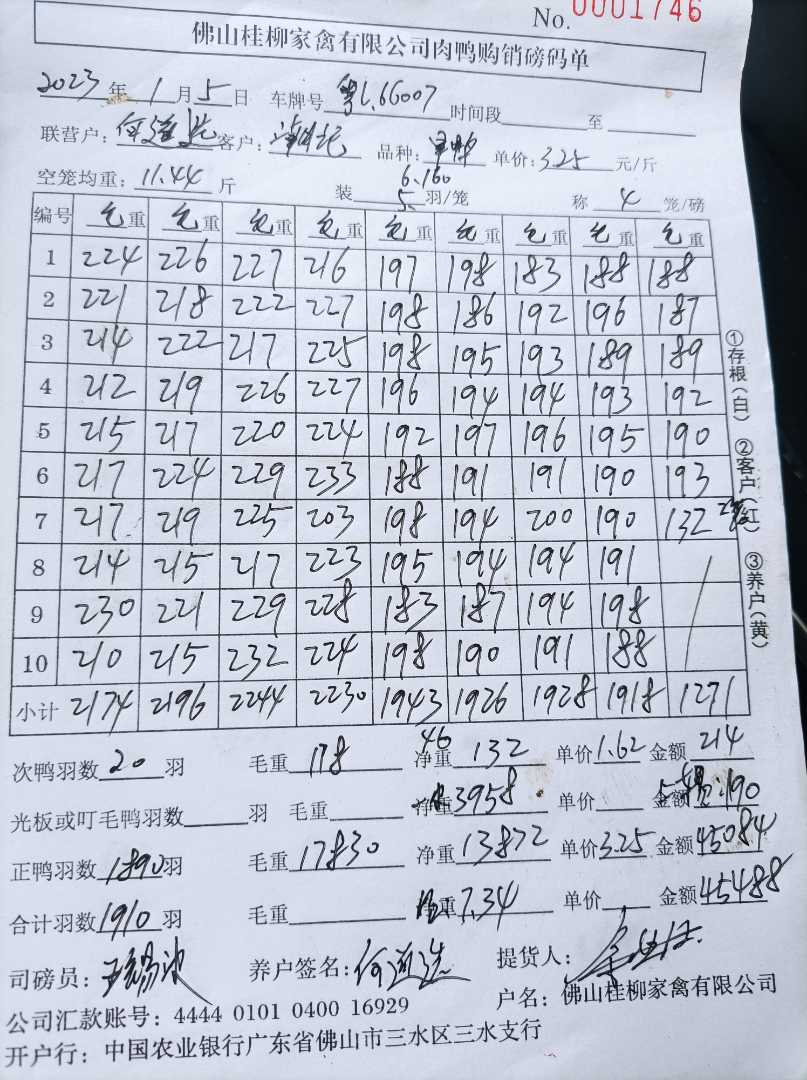 No. 0001746
佛山桂柳家禽有限公司肉鸭购销磅码单
2023年 1月 5日 车牌号 粤L6G007 时间段 至
联营户: 何道选 客户: 品种: 单价: 3.25 元/斤
空笼均重: 11.44 斤 装 6.160 5. 羽/笼 称 4 笼/磅
编号 毛重 毛重 毛重 毛重 毛重 毛重 毛重 毛重 毛重
1 224 226 227 216 197 198 183 188 188
2 221 218 222 227 198 186 192 196 187
3 214 222 217 225 198 195 193 189 189
4 212 219 226 227 196 194 194 193 192
5 215 217 220 224 192 197 196 195 190
6 217 224 229 233 188 191 191 190 193
7 217 219 225 203 198 194 200 190 132
8 214 215 217 223 195 194 194 191
9 230 221 229 228 183 187 194 198
10 210 215 232 224 198 190 191 188
小计 2174 2196 2244 2230 1943 1926 1928 1918 1271
次鸭羽数 20 羽 毛重 178 46 净重 132 单价 1.62 金额 214
光板或叮毛鸭羽数 羽 毛重 净重 3958 单价 金额 190
正鸭羽数 1890 羽 毛重 17830 净重 13872 单价 3.25 金额 45084
合计羽数 1910 羽 毛重 净重 7.34 单价 金额 45488
司磅员: 养户签名: 何道选 提货人:
公司汇款账号: 4444 0101 0400 16929 户名: 佛山桂柳家禽有限公司
开户行: 中国农业银行广东省佛山市三水区三水支行
①存根(白) ②客户(红) ③养户(黄)